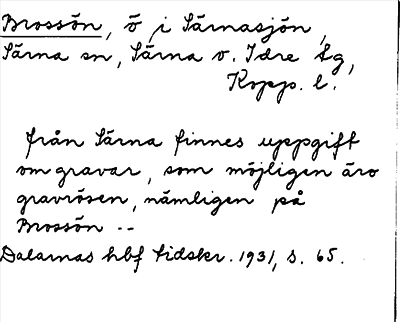 Brossön, ö i Särnasjön,
Särna sn, Särna o. Idre tg,
Kopp. l.
från Särna finnes uppgift
om gravar, som möjligen äro
gravrösen, nämligen på
Brossön --
Dalarnas hbf tidskr. 1931, s. 65.